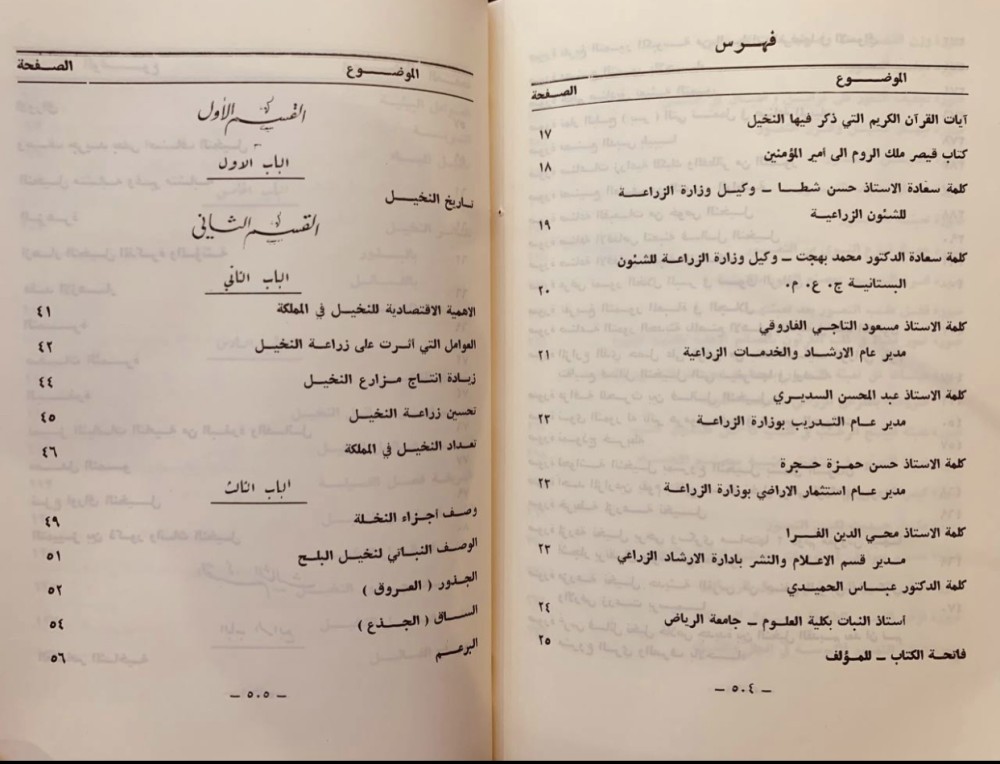 فهرس
الموضوع الصفحة
آيات القرآن الكريم التي ذكر فيها النخيل ١٧
كتاب قيصر ملك الروم الى أمير المؤمنين ١٨
كلمة سعادة الاستاذ حسن شطا – وكيل وزارة الزراعة
للشئون الزراعية ١٩
كلمة سعادة الدكتور محمد بهجت – وكيل وزارة الزراعة للشئون
البستانية ج. ع. م. ٢٠
كلمة الاستاذ مسعود التاجي الفاروقي
مدير عام الارشاد والخدمات الزراعية ٢١
كلمة الاستاذ عبد المحسن السديري
مدير عام التدريب بوزارة الزراعة ٢٣
كلمة الاستاذ حسن حمزة حجرة
مدير عام استثمار الاراضي بوزارة الزراعة ٢٣
كلمة الاستاذ محي الدين الفرا
مدير قسم الاعلام والنشر بادارة الارشاد الزراعي ٢٣
كلمة الدكتور عباس الحميدي
أستاذ النبات بكلية العلوم – جامعة الرياض ٢٤
فاتحة الكتاب – للمؤلف ٢٥
– ٥٠٤ –
الموضوع الصفحة
القسم الأول
الباب الاول
تاريخ النخيل
القسم الثاني
الباب الثاني
الاهمية الاقتصادية للنخيل في المملكة ٤١
العوامل التي أثرت على زراعة النخيل ٤٢
زيادة انتاج مزارع النخيل ٤٤
تحسين زراعة النخيل ٤٥
تعداد النخيل في المملكة ٤٦
الباب الثالث
وصف أجزاء النخلة ٤٩
الوصف النباتي لنخيل البلح ٥١
الجذور ( العروق ) ٥٢
الساق ( الجذع ) ٥٤
البرعم ٥٦
– ٥٠٥ –